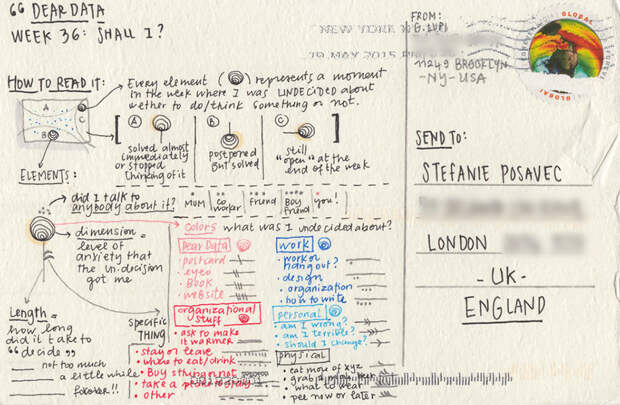 “ DEAR DATA
WEEK 36: SHALL I?
HOW TO READ IT:
EVERY ELEMENT ( ) REPRESENTS A MOMENT
IN THE WEEK WHERE I WAS UNDECIDED ABOUT
WETHER TO DO/THINK SOMETHING OR NOT.
A
B
C
A
solved almost
immediately
or stopped
thinking of it
B
postponed
BUT solved
C
still
"open" at the
end of the week
ELEMENTS:
did I talk to
anybody about it?
MOM
CO
WORKER
FRIEND
BOY
FRIEND
you!
dimension =
level of
anxiety that
the un-decision
got me
Length =
how long
did it take to
“decide”
not too much
a little while
forever!!
SPECIFIC
THING
COLORS what was I undecided about?
Dear Data
• postcard
• BOOK
• website
ORGANIZATIONAL
STUFF
• ask to make
it warmer
• stay or leave
• where to eat/drink
• Buy things or not
• other
work
• work or
hang out?
• design
• organization
• how to write
personal
• am I wrong?
• am I terrible?
• should I change?
physical
• eat more of xyz
• what to wear
• pee now or later
FROM:
G. LUPI
11249 BROOKLYN
-NY- USA
GLOBAL
FOREVER
GLOBAL
NEW YORK
19 MAY 2015
SEND TO:
STEFANIE POSAVEC
LONDON
- UK -
ENGLAND